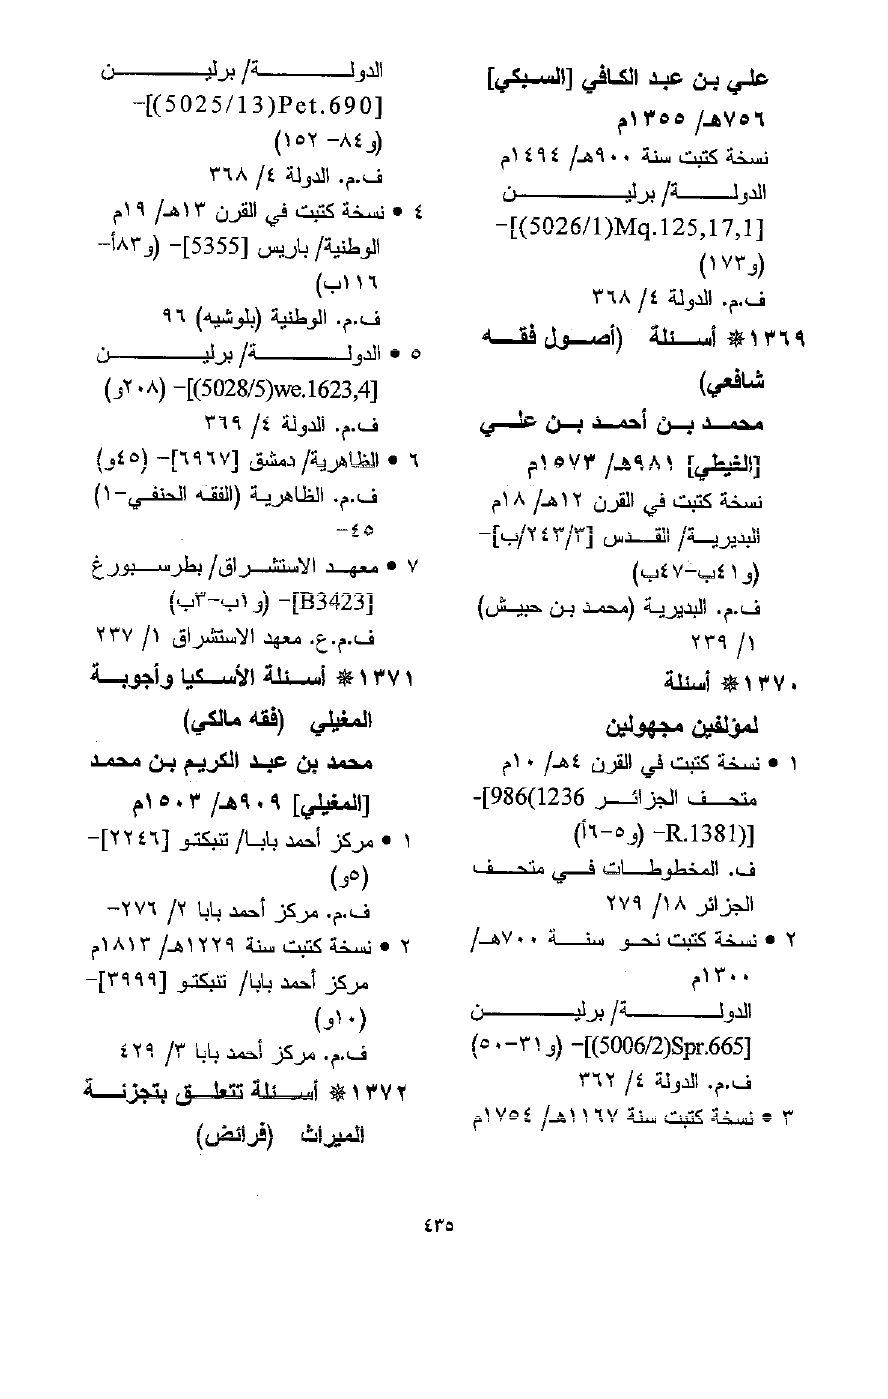 علي بن عبد الكافي [السبكي]
٧٥٦هـ/ ١٣٥٥م
نسخة كتبت سنة ٩٠٠هـ/ ١٤٩٤م
الدولـــة/ برليـــن
[5026/1)Mq.125,17,1)]-
(و١٧٣)
ف.م. الدولة ٤/ ٣٦٨
١٣٦٩ ❋ أسـئلة (أصـول فقـه
شافعي)
محمـد بـن أحمـد بـن علـي
[الغيطي] ٩٨١هـ/ ١٥٧٣م
نسخة كتبت في القرن ١٢هـ/ ١٨م
البديريـة/ القـدس [٢٤٣/٣/ب]-
(و٤١ب-٤٧ب)
ف.م. البديرية (محمد بن حبيش)
١/ ٢٣٩
١٣٧٠ ❋ أسئلة
لمؤلفين مجهولين
١ • نسخة كتبت في القرن ٤هـ/ ١٠م
متحـف الجزائـر 1236)986]-
[(R.1381- (و٥-٦أ)
ف. المخطوطـات فـي متحـف
الجزائر ١٨/ ٢٧٩
٢ • نسخة كتبت نحـو سنـة ٧٠٠هـ/
١٣٠٠م
الدولـــة/ برليـــن
[5006/2)Spr.665)]- (و٣١-٥٠)
ف.م. الدولة ٤/ ٣٦٢
٣ • نسخة كتبت سنة ١١٦٧هـ/ ١٧٥٤م
الدولـــة/ برليـــن
[5025/13)Pet.690)]-
(و٨٤- ١٥٢)
ف.م. الدولة ٤/ ٣٦٨
٤ • نسخة كتبت في القرن ١٣هـ/ ١٩م
الوطنية/ باريس [5355]- (و٨٣أ-
١١٦ب)
ف.م. الوطنية (بلوشيه) ٩٦
٥ • الدولـــة/ برليـــن
[5028/5)we.1623,4)]- (٢٠٨و)
ف.م. الدولة ٤/ ٣٦٩
٦ • الظاهرية/ دمشق [٦٩٦٧]- (٤٥و)
ف.م. الظاهرية (الفقه الحنفي-١)
٤٥-
٧ • معهـد الاستشـراق/ بطرسـبورغ
[B3423]- (و١ب-٣ب)
ف.م.ع. معهد الاستشراق ١/ ٢٣٧
١٣٧١ ❋ أسـئلة الأسـكيا وأجوبـة
المغيلي (فقه مالكي)
محمد بن عبد الكريم بن محمد
[المغيلي] ٩٠٩هـ/ ١٥٠٣م
١ • مركز أحمد بابـا/ تنبكتـو [٢٢٤٦]-
(٥و)
ف.م. مركز أحمد بابا ٢/ ٢٧٦-
٢ • نسخة كتبت سنة ١٢٢٩هـ/ ١٨١٣م
مركز أحمد بابا/ تنبكتـو [٣٩٩٩]-
(١٠و)
ف.م. مركز أحمد بابا ٣/ ٤٢٩
١٣٧٢ ❋ أسـئلة تتعلـق بتجزئـة
الميراث (فرائض)
٤٣٥